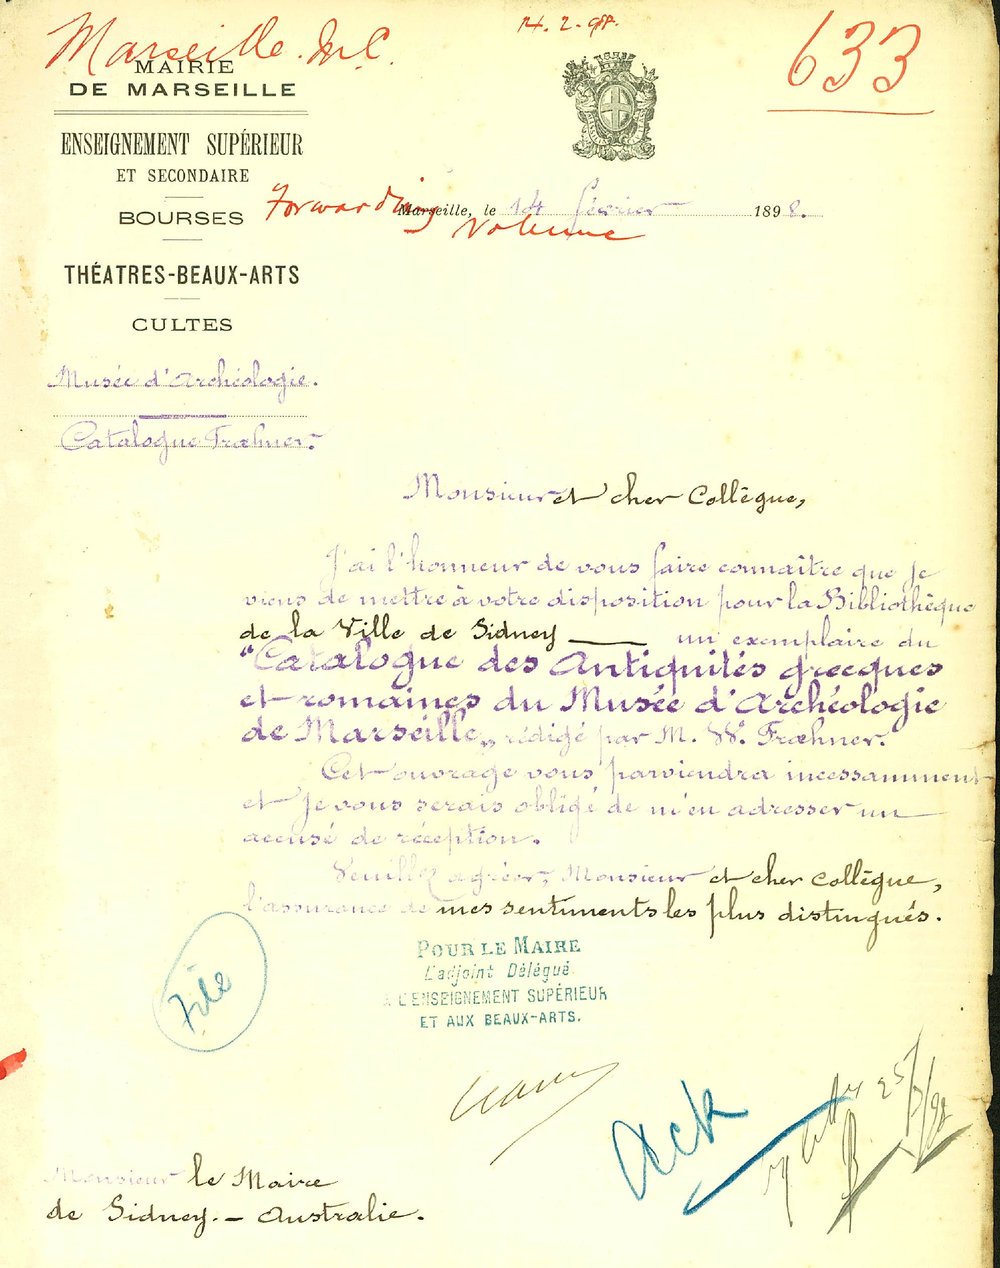 Marseille. M.C.
14.2.98.
633
MAIRIE
DE MARSEILLE
ENSEIGNEMENT SUPÉRIEUR
ET SECONDAIRE
BOURSES
THÉATRES-BEAUX-ARTS
CULTES
Forwarding
Volume
Marseille, le 14 février 1898.
Musée d'Archéologie.
Catalogue Frœhner.
Monsieur et cher Collègue,
J'ai l'honneur de vous faire connaître que je
viens de mettre à votre disposition pour la Bibliothèque
de la Ville de Sidney — un exemplaire du
"Catalogue des Antiquités grecques
et romaines du Musée d'Archéologie
de Marseille„ rédigé par M. W. Frœhner.
Cet ouvrage vous parviendra incessamment
et je vous serais obligé de m'en adresser un
accusé de réception.
Veuillez agréer, Monsieur et cher Collègue,
l'assurance de mes sentiments les plus distingués.
POUR LE MAIRE
L'adjoint Délégué
A L'ENSEIGNEMENT SUPÉRIEUR
ET AUX BEAUX-ARTS.
File
Ack
Monsieur le Maire
de Sidney. — Australie.